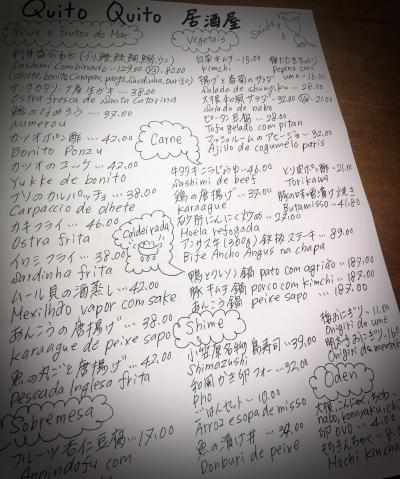 Quito Quito 居酒屋
Peixe e frutos do Mar
Sashimi Combinado ... 129.00
サンタカタリーナ産生ガキ ... 38.00
Ostra fresca de Santa Catarina
鶏のなめろう ... 37.00
Namerou
カツオポン酢 ... 42.00
Bonito Ponzu
カツオのユッケ ... 42.00
Yukke de bonito
ブリのカルパッチョ ... 38.00
Carpaccio de olhete
カキフライ ... 46.00
Ostra frita
イワシフライ ... 38.00
Sardinha frita
ムール貝の酒蒸し ... 42.00
Mexilhão vapor com sake
あんこうの唐揚げ ... 38.00
Karaague de peixe sapo
魚の丸ごと唐揚げ ... 42.00
Pescada Inglesa frita
Sobremesa
フルーツ杏仁豆腐 ... 17.00
Annindofu com
Vegetais
Saúde!
白菜キムチ ... 15.00
Kimchi
Pepino com
ume ... 16.00
Salada de shungiku ... 28.00
Salada de nabo
ピータン豆腐 ... 28.00
Tofu gelado com pitan
マッシュルームのアヒージョ ... 32.00
Ajillo de cogumelo paris
Carne
Sashimi de beef
鶏の唐揚げ ... 37.00
Karaague
砂肝にんにく炒め ... 27.00
Moela refogada
アンガス牛(300g)鉄板ステーキ ... 89.00
Bife Ancho Angus na chapa
とり皮ポン酢 ... 21.00
Torikawa
豚の味噌漬け焼き
Butamisso ... 41.80
Caldeirada
鴨とクレソン鍋 pato com agrião ... 187.00
豚キムチ鍋 porco com kimchi ... 187.00
あんこう鍋 peixe sapo ... 187.00
Shime
小笠原名物 島寿司 ... 39.00
Shimazushi
和風かき卵フォー ... 32.00
Pho
ごはんセット ... 10.00
Arroz e sopa de misso
魚の漬け丼 ... 38.00
Donburi de peixe
梅おにぎり ... 11.00
Onigiri de ume
明太子おにぎり
Oden
nabo, konnyaku, chikuwa
卵 ovo ... 4.00
もちきんちゃく
Mochi kinchaku